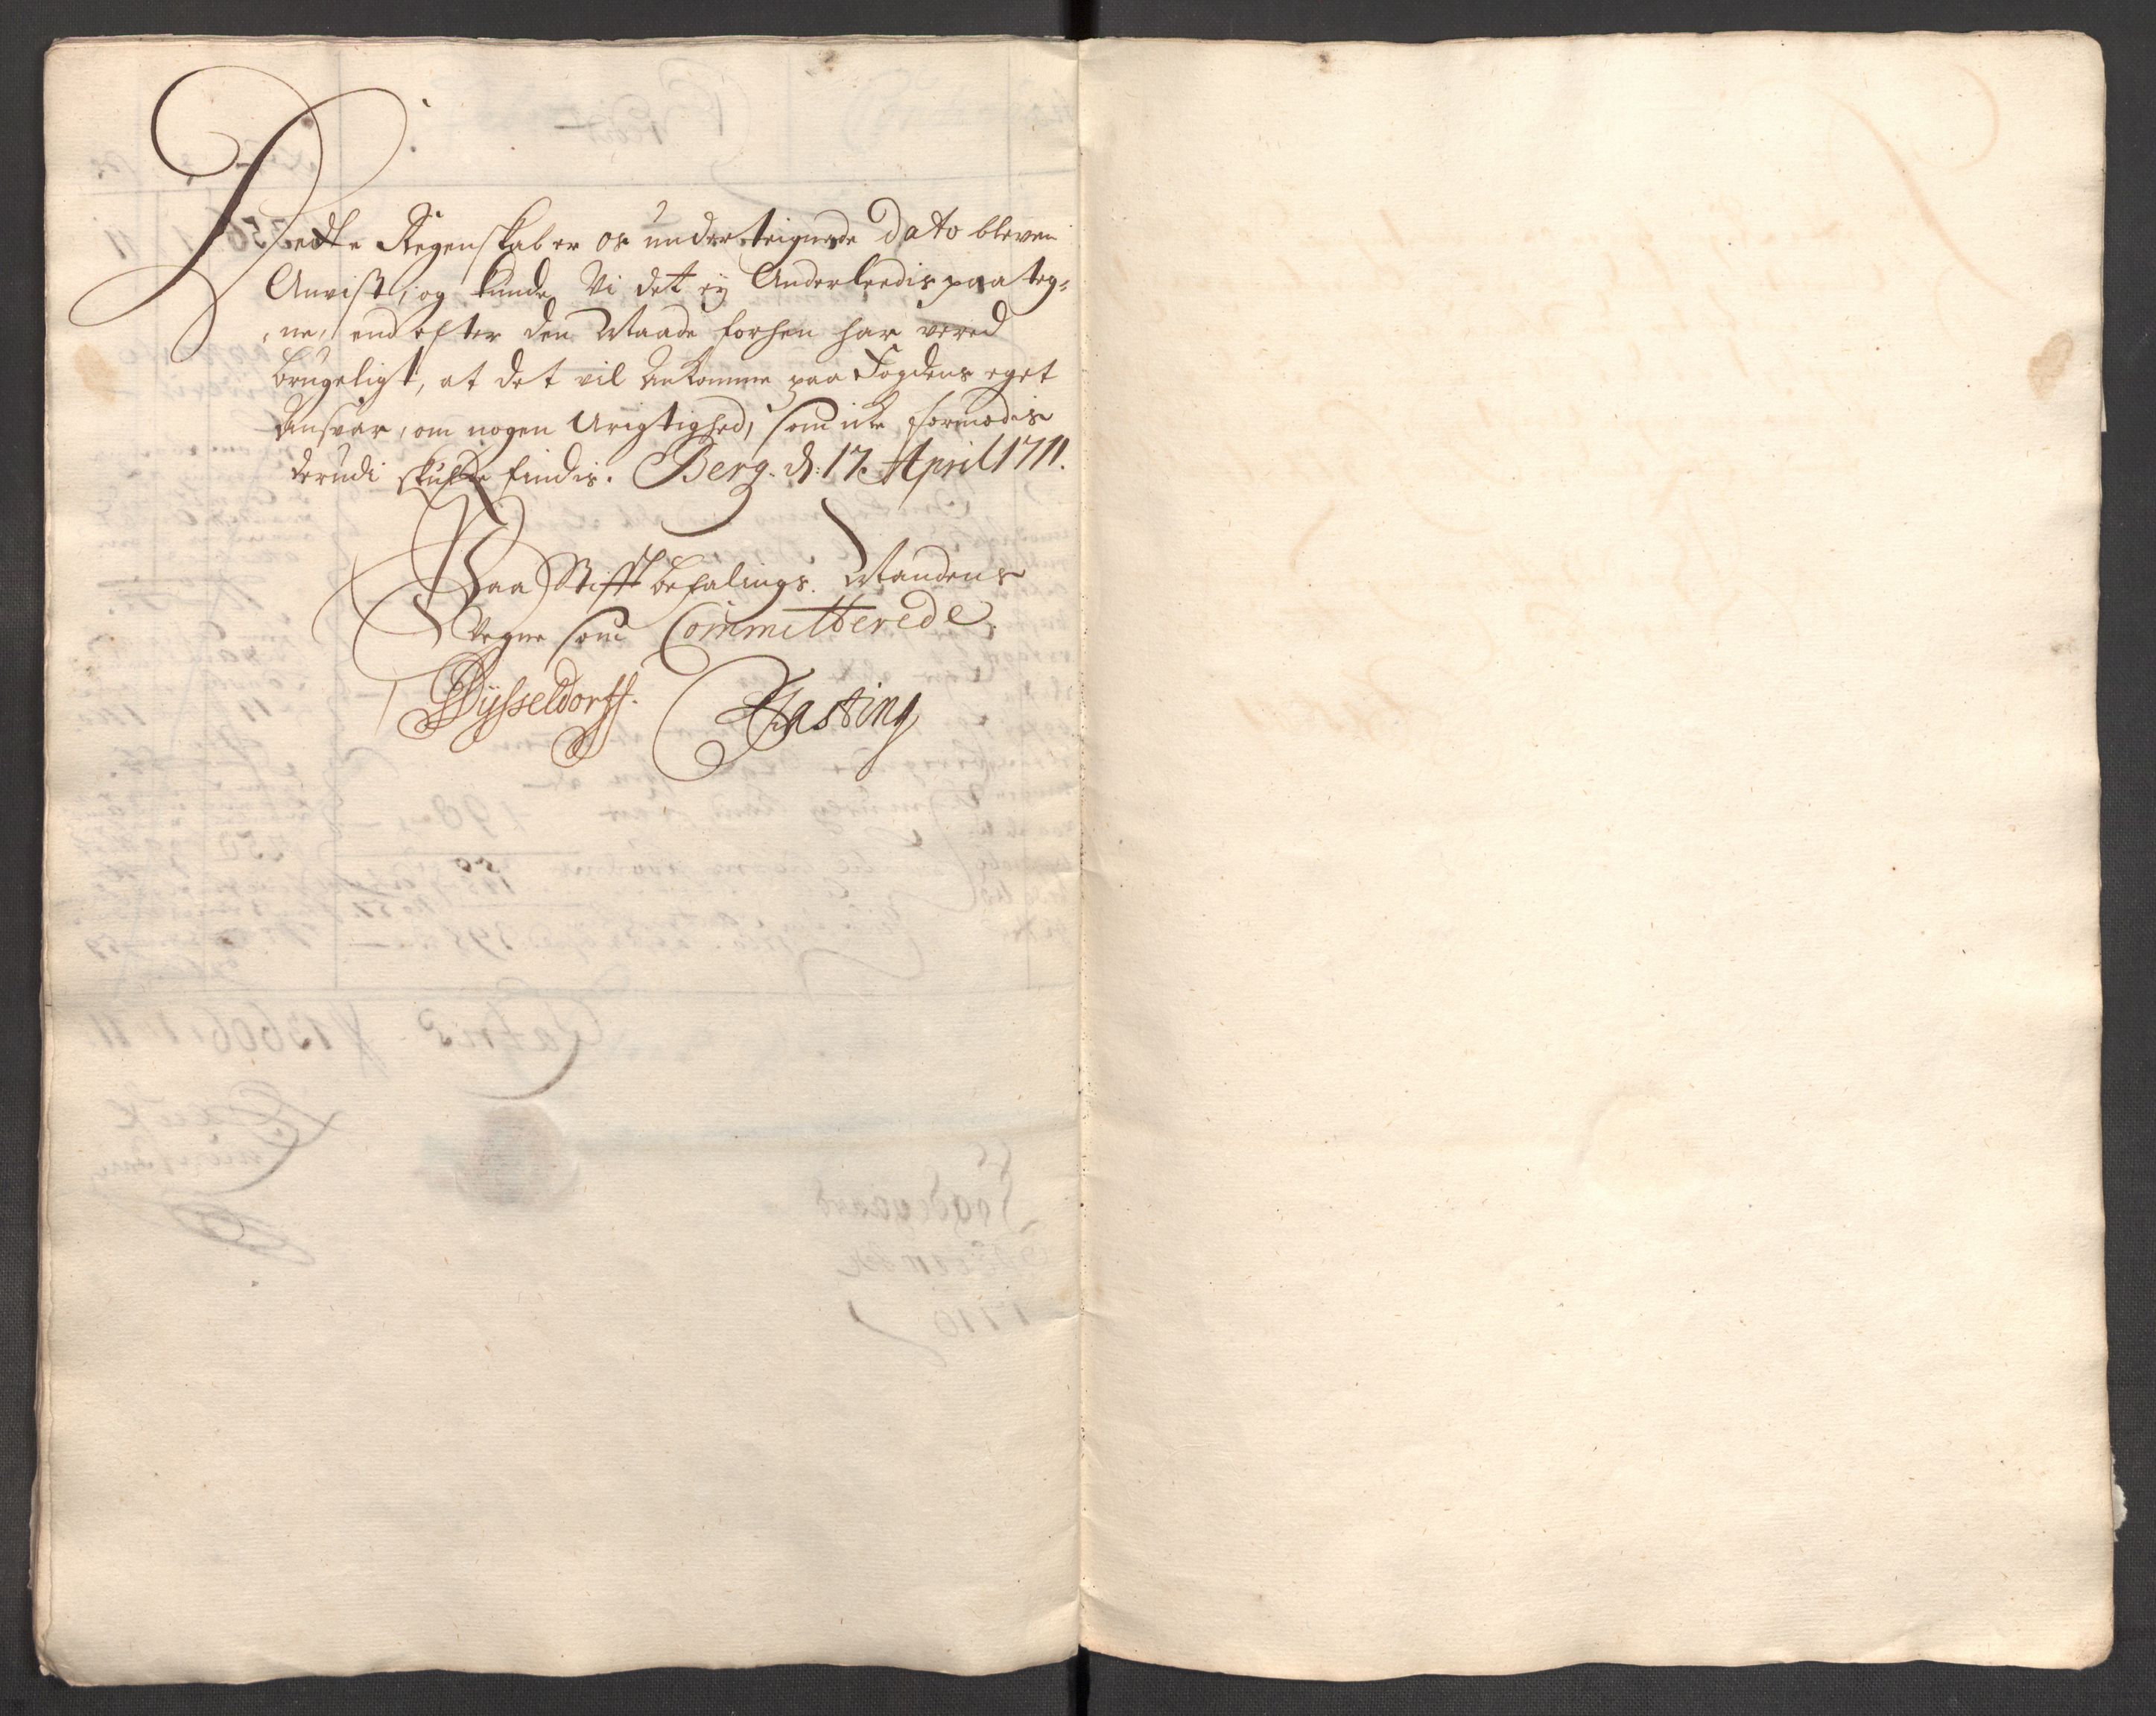 Dette Regenskab er os underteignede Dato bleven
Anvist, og kunde Vi det ey Anderleedis paa teg-
ne, end efter den Maade forhen har vered
brugeligt, at det vil Ankomme paa Fogdens eget
Ansvar, om nogen Urigtighed, som icke formodis
derudi skulde findis. Berg. d: 17. April 1711.
Paa Stifft befalings Mandens
Vegne som Committerede
Dysseldorff. Fasting